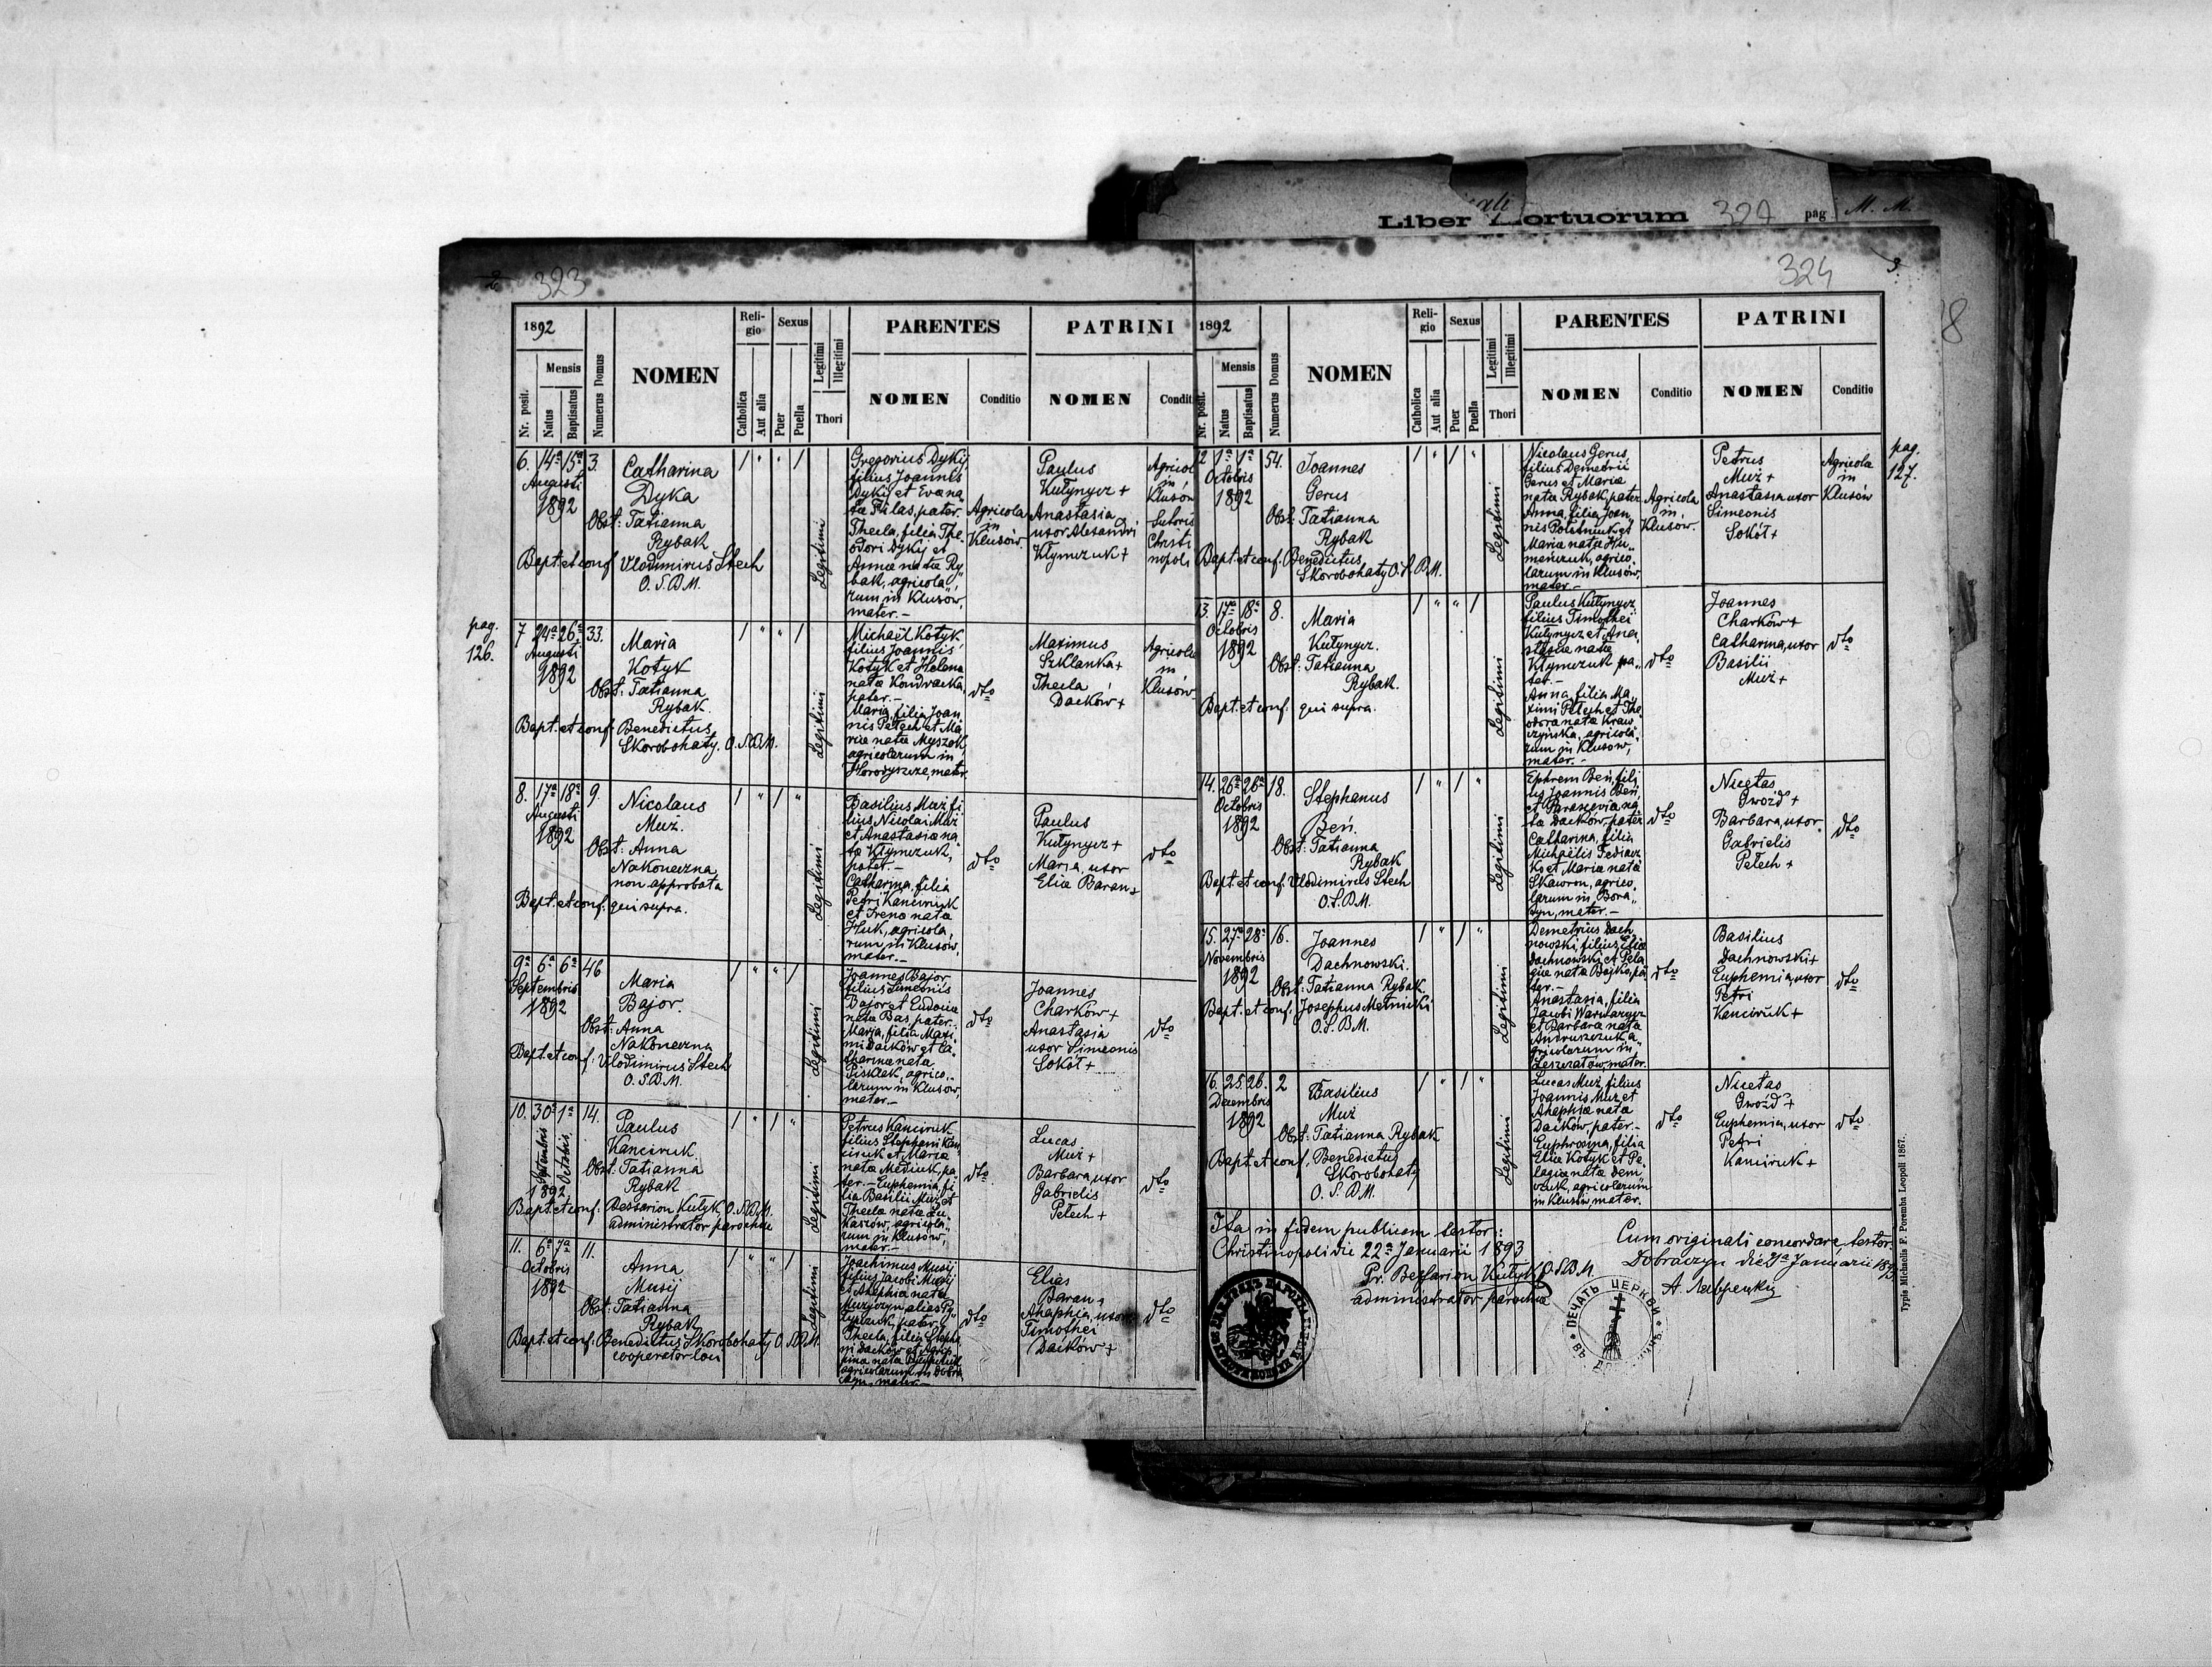 Liber Mortuorum 327 pag. M. M.
2 323
1892
Mensis
Nr. posit.
Natus
Baptisatus
Numerus Domus
NOMEN
Reli-
gio
Catholica
Aut alia
Sexus
Puer
Puella
Legitimi
Illegitimi
Thori
PARENTES
NOMEN
Conditio
PATRINI
NOMEN
Condit
6. 14a 15a 3.
Augusti
1892
Catharina
Dyka
Obst: Tatianna
Rybak
Bapt. et conf. Vlodimirus Stech
O. S. B. M.
Legitimi
Gregorius Dykij,
filius Joannis
Dykij et Eva na
ta Filas, pater.
Theela, filia The-
odori Dykij et
Annæ natæ Ry
bak, agricola
rum in Klusów,
mater.-
Agricola
in
Klusów.
Paulus
Kułynycz +
Anastasia
uxor Alexandri
Kłymczuk +
Agricol
in
Klusów
Sutoris
Christi
nopoli
pag.
126.
7 24a 26a 33.
Augusti
1892
Maria
Kotyk
Obst: Tatianna
Rybak.
Bapt. et conf. Benedictus
Skorobohaty. O. S. B. M.
Legitimi
Michaël Kotyk
filius Joannis
Kotyk et Helena
nata Kondracka,
pater.-
Maria, filia Joan
nis Petech et Ma
riæ natæ Myszak,
agricolarum in
Horodyszcze, mater.
dto
Maximus
Szklanka +
Theela
Dacków +
Agricolæ
in
Klusów
8. 17a 18a 9.
Augusti
1892
Nicolaus
Muż.
Obst: Anna
Nakoneczna
non approbata
Bapt. et conf. qui supra.
Legitimi
Basilius Muż fi
lius Nicolai Muż
et Anastasia na
ta Kłymczuk,
pater.-
Catharina, filia
Petri Kanciruk
et Irena nata
Huk, agricola,
rum in Klusów,
mater.-
dto
Paulus
Kułynycz +
Maria, uxor
Eliæ Baran +
dto
9a 6a 6a 46
Septembris
1892
Maria
Bajor.
Obst: Anna
Nakoneczna
Bapt. et conf: Vlodimirus Stech
O. S. B. M.
Legitimi
Joannes Bajor
filius Simeonis
Bajor et Eudocia
nata Bas, pater.-
Maria, filia Maxi
mi Dacków et Ca
tharina nata
Pisklak, agrico,-
larum in Klusów,
mater.-
dto
Joannes
Charków +
Anastasia
uxor Simeonis
Sokół +
dto
10. 30a 1a 14.
Septembris
Octobris
1892
Paulus
Kanciruk.
Obst: Tatianna
Rybak
Bapt. et conf: Bessarion Kułyk, O. S. B. M.
administrator parochiæ
Legitimi
Petrus Kanciruk
filius Stephani Kan
ciruk et Maria
nata Mediuk, pa
ter.- Euphemia, fi
lia Basilii Muż et
Theela nata Lu
kaszów, agricola"
rum in Klusów,
mater.-
dto
Lucas
Muż +
Barbara, uxor
Gabrielis
Petech +
dto
11. 6a 7a 11.
Octobris
1892
Anna
Musij
Obst: Tatianna
Rybak
Bapt. et conf: Benedictus Skorobohaty O. S. B. M.
cooperator loci
Legitimi
Joachimus Musij
filius Jacobi Musij
et Ahaphia nata
alias
pater.
Theela, filia Stepha
ni Dacków et Agrip
pina nata
agricolarum in Dobra
czyn, mater.-
dto
Elias
Baran +
Ahaphia, uxor
Timothei
Dacków +
dto
324 3.
1892
Mensis
Nr. posit.
Natus
Baptisatus
Numerus Domus
NOMEN
Reli-
gio
Catholica
Aut alia
Sexus
Puer
Puella
Legitimi
Illegitimi
Thori
PARENTES
NOMEN
Conditio
PATRINI
NOMEN
Conditio
pag.
127.
12 1a 1a 54.
Octobris
1892
Joannes
Gerus
Obst: Tatianna
Rybak
Bapt. et conf. Benedictus
Skorobohaty O. S. B. M.
Legitimi
Nicolaus Gerus,
filius Demetrii
Gerus et Maria
nata Rybak, pater.
Anna, filia Joan,
nis et
Maria nata Hu"
meńczuk, agrico,
larum in Klusów,
mater.-
Agricola
in
Klusów.
Petrus
Muż +
Anastasia uxor
Simeonis
Sokół +
Agricolæ
in
Klusów
13. 17a 18a 8.
Octobris
1892
Maria
Kułynycz.
Obst: Tatianna
Rybak.
Bapt. et conf. qui supra.
Legitimi
Paulus Kułynycz
filius Timothei
Kułynycz et Ana,
stasia nata
Kłymczuk pa"
ter.-
Anna, filia Ma,
ximi Petech et The,
odora nata Kraw
czyńska, agricola,
rum in Klusów,
mater.-
dto
Joannes
Charków +
Catharina, uxor
Basilii
Muż +
dto
14. 26a 26a 18.
Octobris
1892
Stephanus
Beń.
Obst: Tatianna
Rybak
Bapt. et conf: Vlodimirus Stech
O. S. B. M.
Legitimi
Ephrem Beń, fili
us Joannis Beń,
et Parascevia na
ta Dacków, pater
Catharina, filia
Michaëlis Fediacz
ko et Maria nata
Skawron, agrico,
larum in Bora"
tyn, mater.-
dto
Nicetas
Gwozd +
Barbara, uxor
Gabrielis
Petech +
dto
15. 27a 28a 16.
Novembris
1892
Joannes
Dachnowski.
Obst: Tatianna Rybak
Bapt. et conf. Josephus Metniski
O. S. B. M.
Legitimi
Demetrius Dach
nowski, filius Eliæ
Dachnowski et Pela
gia nata Bojko, pa,
ter.-
Anastasia, filia
Jacobi Warwarycz
et Barbara nata
Andruszczuk, a"
gricolarum in
Leszczatów, mater.
dto
Basilius
Dachnowski +
Euphemia, uxor
Petri
Kanciruk +
dto
16. 25. 26. 2
Decembris
1892
Basilius
Muż
Obst: Tatianna Rybak
Bapt. et conf. Benedictus
Skorobohaty
O. S. B. M.
Legitimi
Lucas Muż, filius
Joannis Muż et
Ahaphia nata
Dacków, pater.-
Euphrosina, filia
Eliæ Kotyk et Pe,
lagia nata Dem
czuk, agricolarum
in Klusów, mater.
dto
Nicetas
Gwozd +
Euphemia, uxor
Petri
Kanciruk +
dto
Ita in fidem publicam testor:
Christinopoli die 22a Januarii 1893
Pr. Bessarion Kułyk O. S. B. M.
administrator parochiæ
Cum originali concordare testor.
Dobraczyn die Januarii 189
ПЕЧАТЬ ЦЕРКВИ
Typis Michaelis F. Poremba Leopoli 1867.